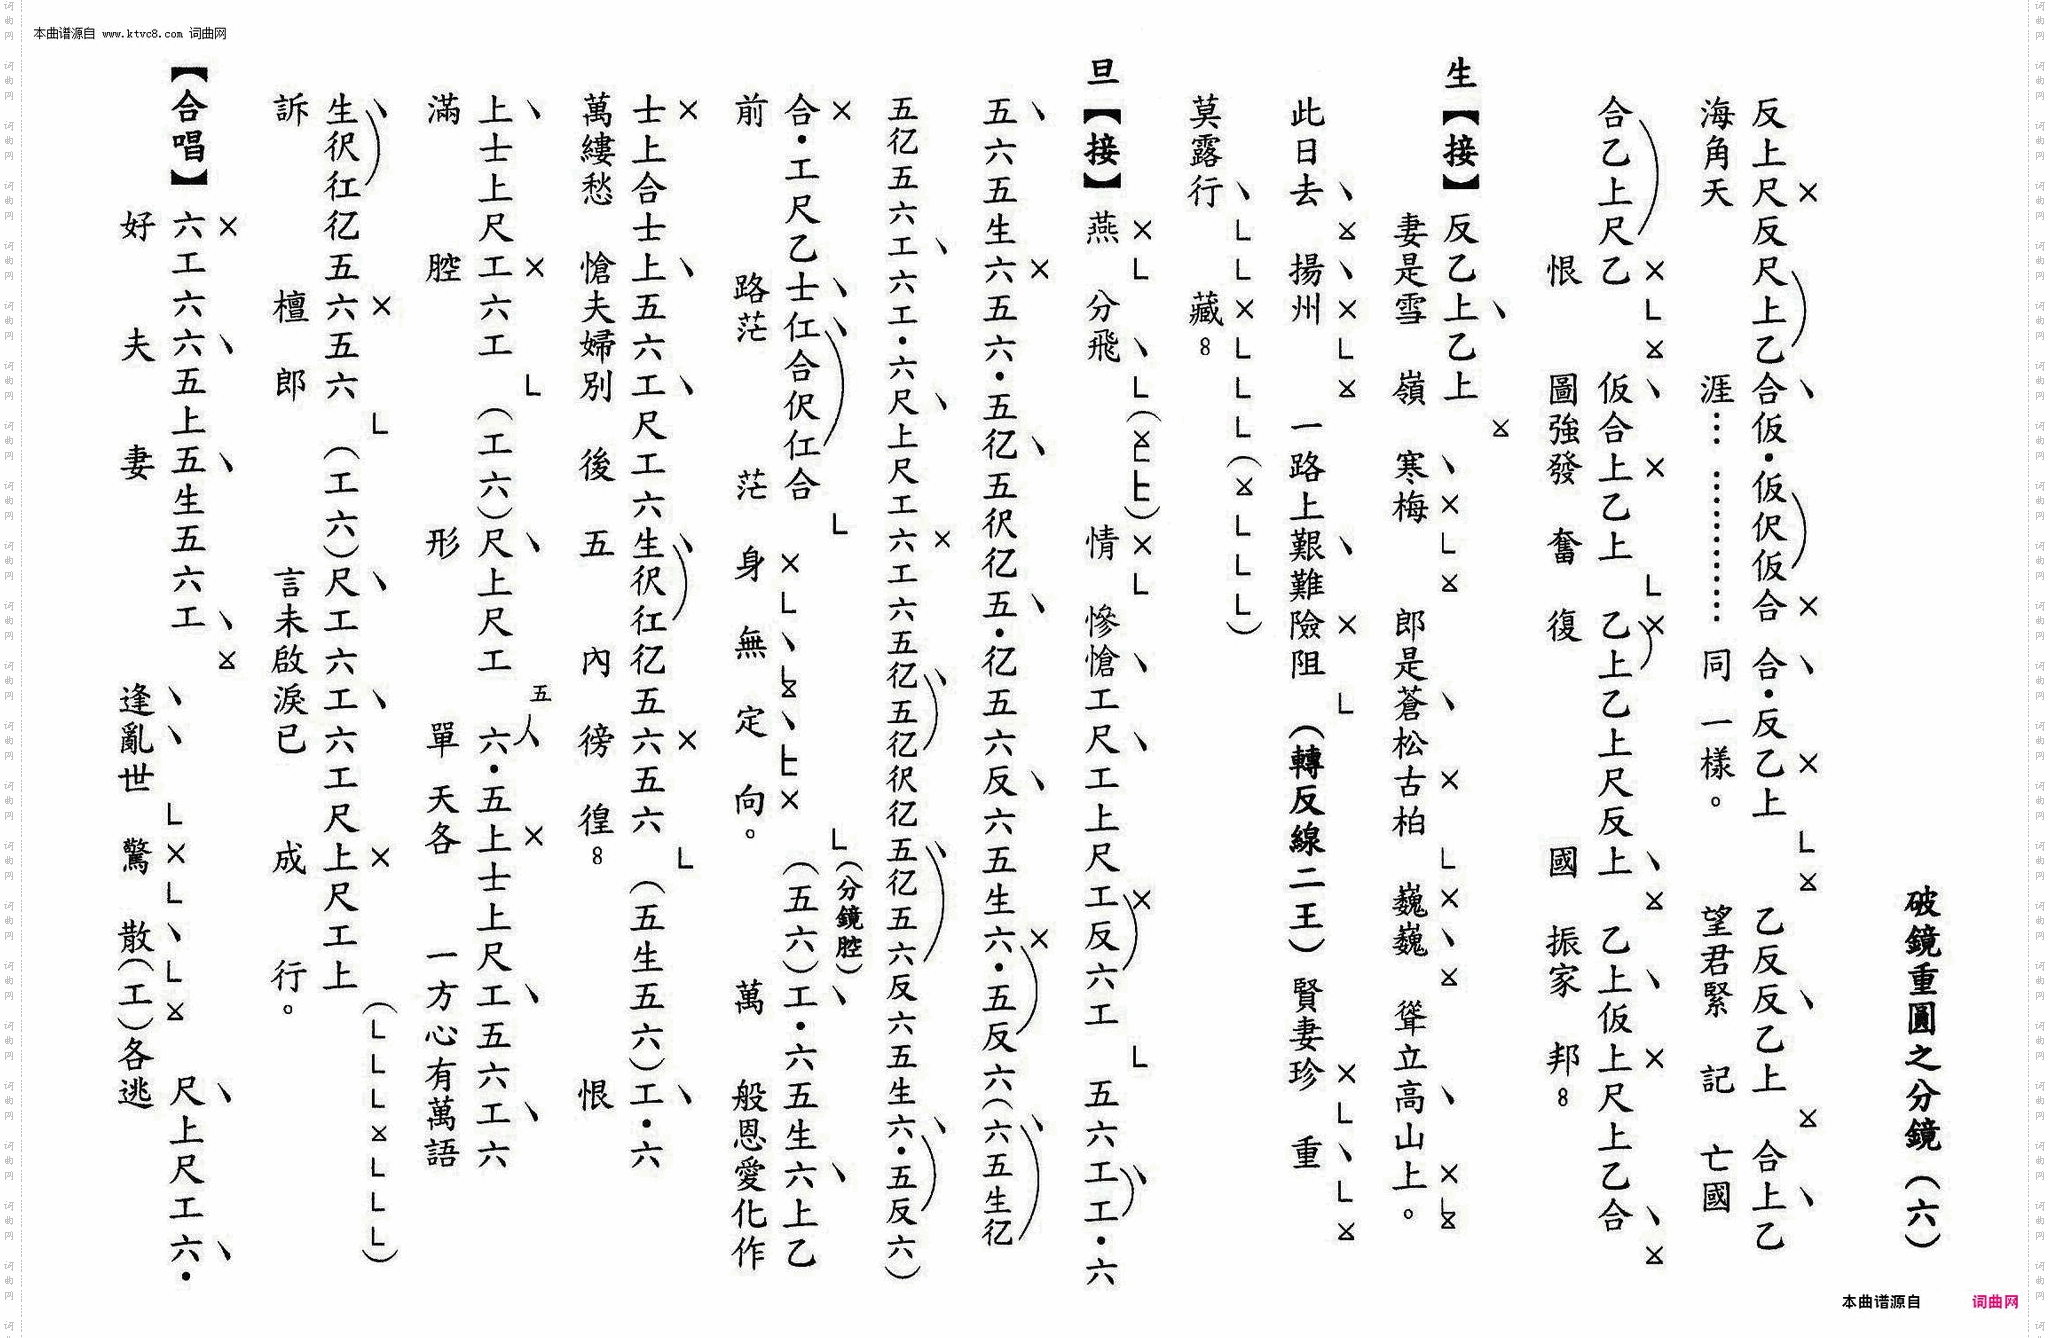 本曲谱源自 www.ktvc8.com 词曲网
破鏡重圓之分鏡（六）
反上尺反尺上乙合仮•仮伬仮合 合•反乙上 乙反反乙上 合上乙
海角天 涯⋯ ⋯⋯⋯ 同一樣。 望君緊 記 亡國
合乙上尺乙 仮合上乙上 乙上乙上尺反上 乙上仮上尺上乙合
恨 圖強發 奮 復 國 振家 邦8
生【接】反乙上乙上
妻是雪 嶺 寒梅 郎是蒼松古柏 巍巍 聳立高山上。
此日去 揚州 一路上艱難險阻 （轉反線二王）賢妻珍 重
莫露行 藏8
旦【接】燕 分飛 情 慘愴工尺工上尺工反六工 五六工工•六
五六五生六五六•五亿五伬亿五•亿五六反六五生六•五反六（六五生亿
五亿五六工六工•六尺上尺工六工六五亿五亿伬亿五亿五六反六五生六•五反六）
合•工尺乙士仜合伬仜合 （分鏡腔） （五六）工•六五生六上乙
前 路茫 茫 身 無 定 向。 萬 般恩愛化作
士上合士上五六工尺工六生伬仜亿五六五六 （五生五六）工•六
萬縷愁 愴夫婦別 後 五 內 徬 徨8 恨
上士上尺工六工 （工六）尺上尺工 五 六•五上士上尺工五六工六
滿 腔 形 單 天各 一方心有萬語
生伬仜亿五六五六 （工六）尺工六工六工尺上尺工上
訴 檀 郎 言未啟淚已 成 行。
【合唱】六工六六五上五生五六工 尺上尺工六•
好 夫 妻 逢亂世 驚 散（工）各逃
本曲谱源自 词曲网